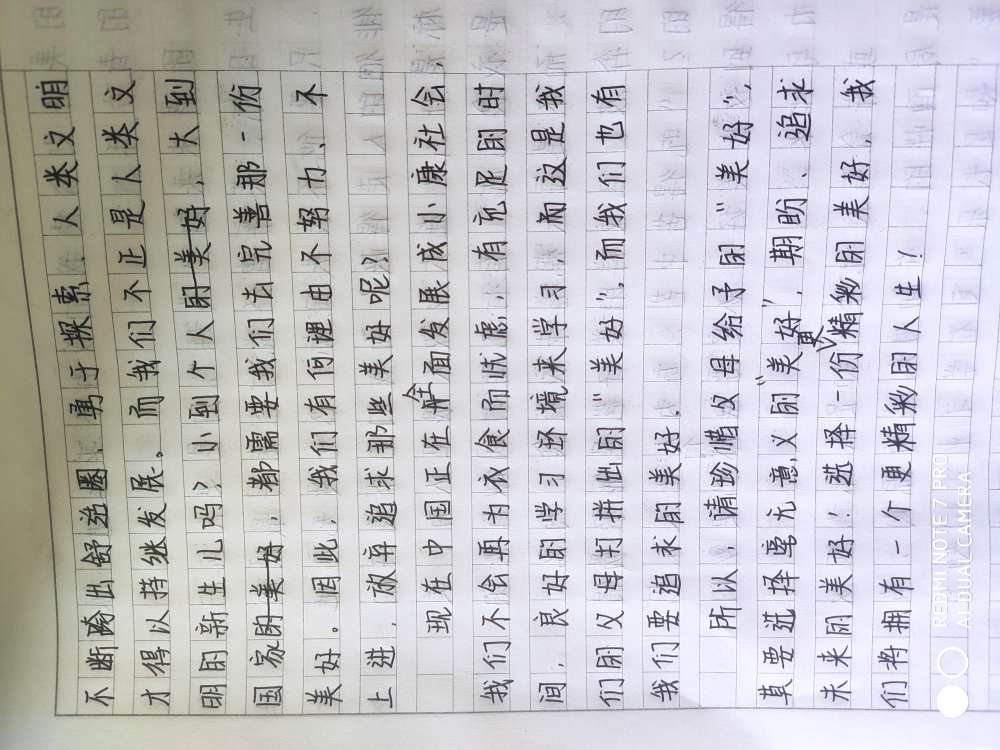 不断跨出舒适圈，勇于探索，人类文明
才得以持续发展。而我们不正是人类文
明的新生儿吗？小到个人的美好，大到
国家的美好，都需要我们去完善那一份
美好。因此，我们有何理由不努力、不
上进，放弃追求那些美好呢？
现在中国正在全面发展成小康社会，
我们不会再为衣食而忧虑，有充足的时
间，良好的学习环境来学习，而这是我
们的父母打拼出的“美好”，而我们也有
我们要追求的美好。
所以，请珍惜父母给予的“美好”，
莫要选择毫无意义的“美好”，期盼、追求
未来的美好！选择一份更精彩的美好，我
们将拥有一个更精彩的人生！
REDMI NOTE 7 PRO
AI DUAL CAMERA